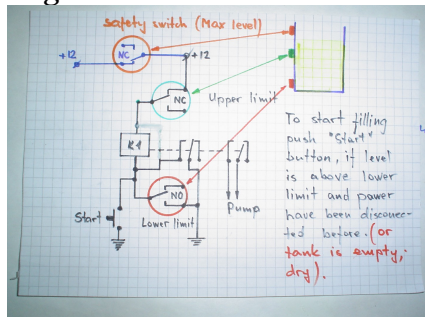 safety switch (Max level)
+12
NC
+12
NC
Upper limit
K1
NO
Start
Lower limit
Pump
To start filling
push "Start"
button, if level
is above lower
limit and power
have been disconec-
ted before. (or
tank is empty,
dry).